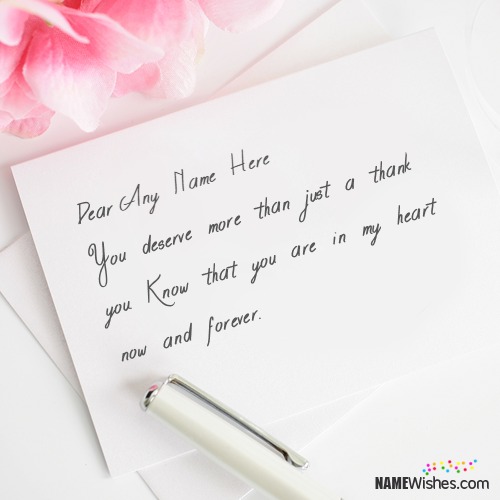 Dear Any Name Here
You deserve more than just a thank
you Know that you are in my heart
now and forever.
NAMEWishes.com